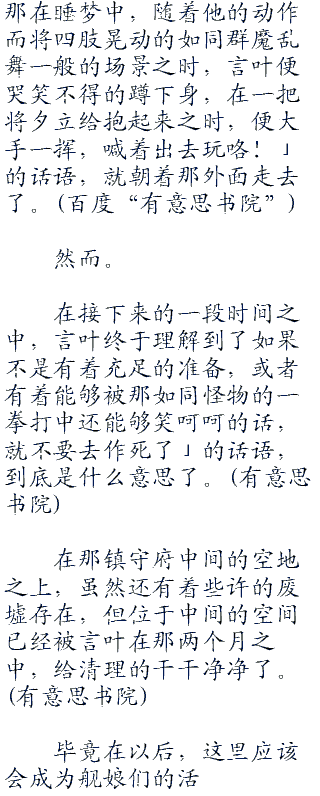 那在睡梦中，随着他的动作
而将四肢晃动的如同群魔乱
舞一般的场景之时，言叶便
哭笑不得的蹲下身，在一把
将夕立给抱起来之时，便大
手一挥，喊着出去玩咯！」
的话语，就朝着那外面走去
了。(百度“有意思书院”)
然而。
在接下来的一段时间之
中，言叶终于理解到了如果
不是有着充足的准备，或者
有着能够被那如同怪物的一
拳打中还能够笑呵呵的话，
就不要去作死了」的话语，
到底是什么意思了。(有意思
书院)
在那镇守府中间的空地
之上，虽然还有着些许的废
墟存在，但位于中间的空间
已经被言叶在那两个月之
中，给清理的干干净净了。
(有意思书院)
毕竟在以后，这里应该
会成为舰娘们的活